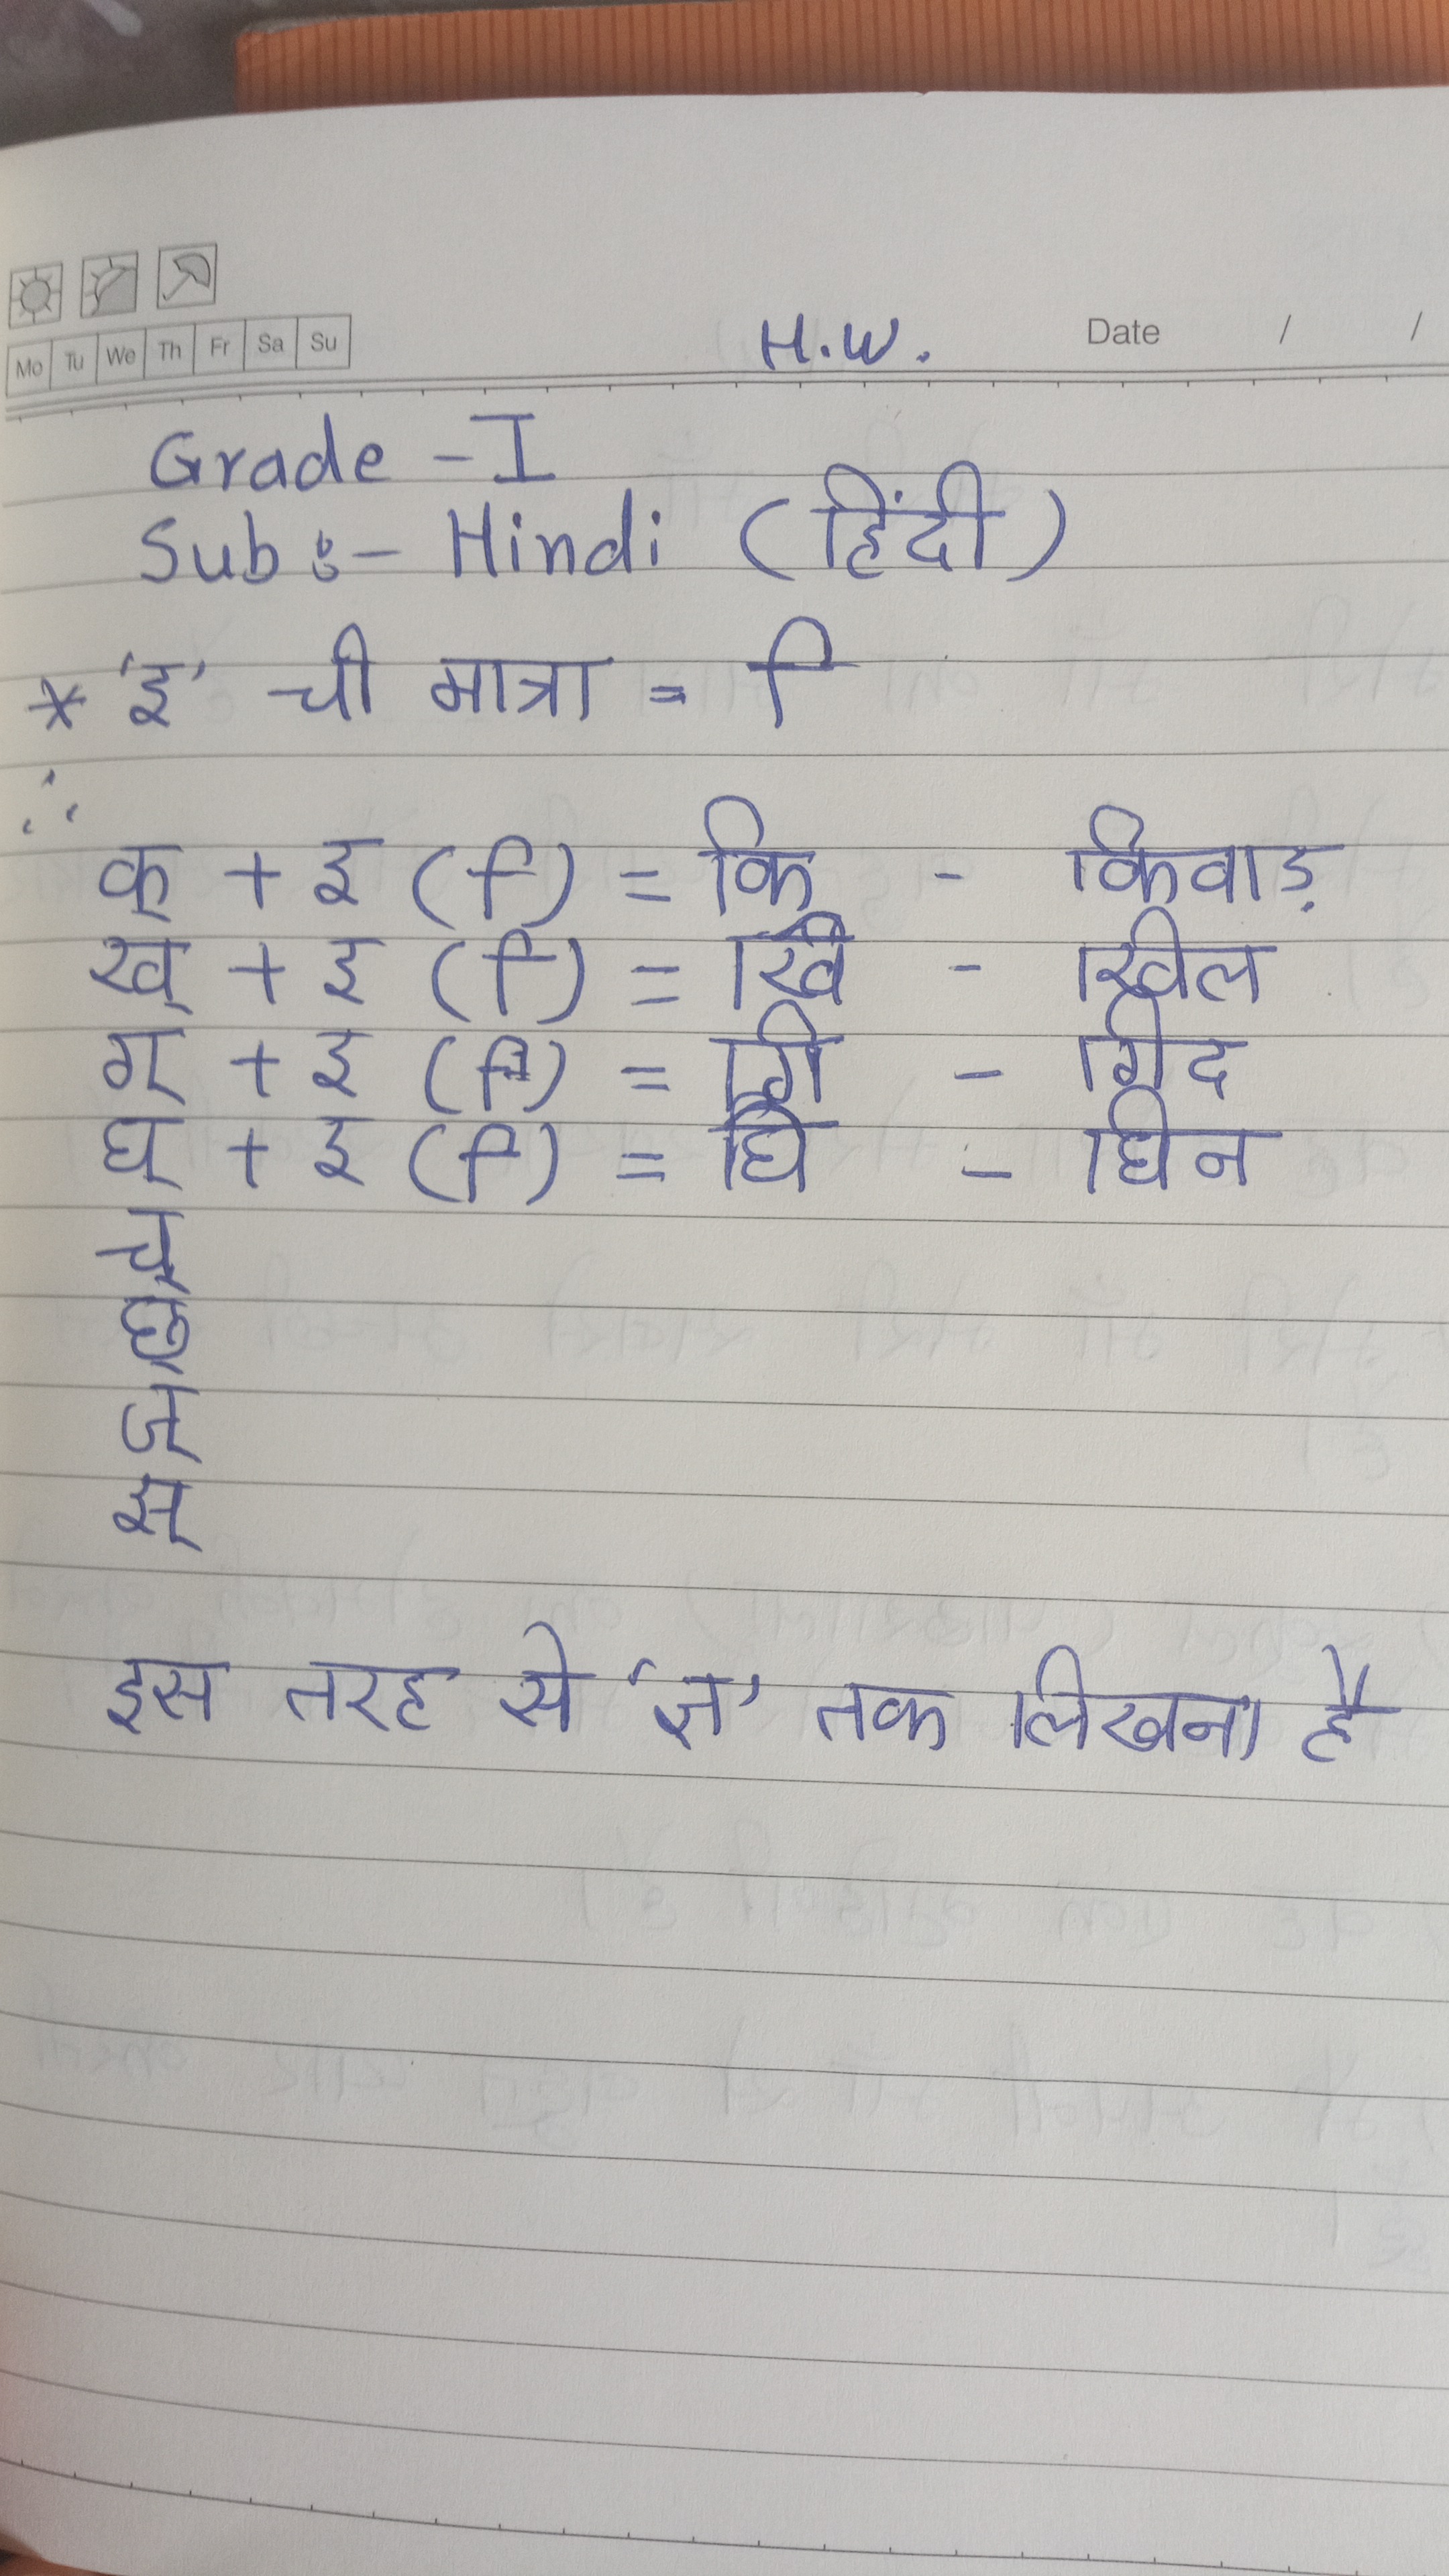 Mo Tu We Th Fr Sa Su
H.W.
Date / /
Grade - I
Sub :- Hindi (हिंदी)
* 'इ' ची मात्रा = ि
∴
क् + इ (ि) = कि - किवाड़
ख् + इ (ि) = खि - खिल
ग् + इ (ि) = गि - गिद
घ् + इ (ि) = घि - घिन
च्
छ्
ज्
झ्
इस तरह से 'ज्ञ' तक लिखना है